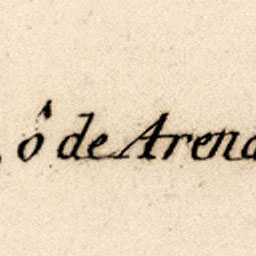 ô de Arena